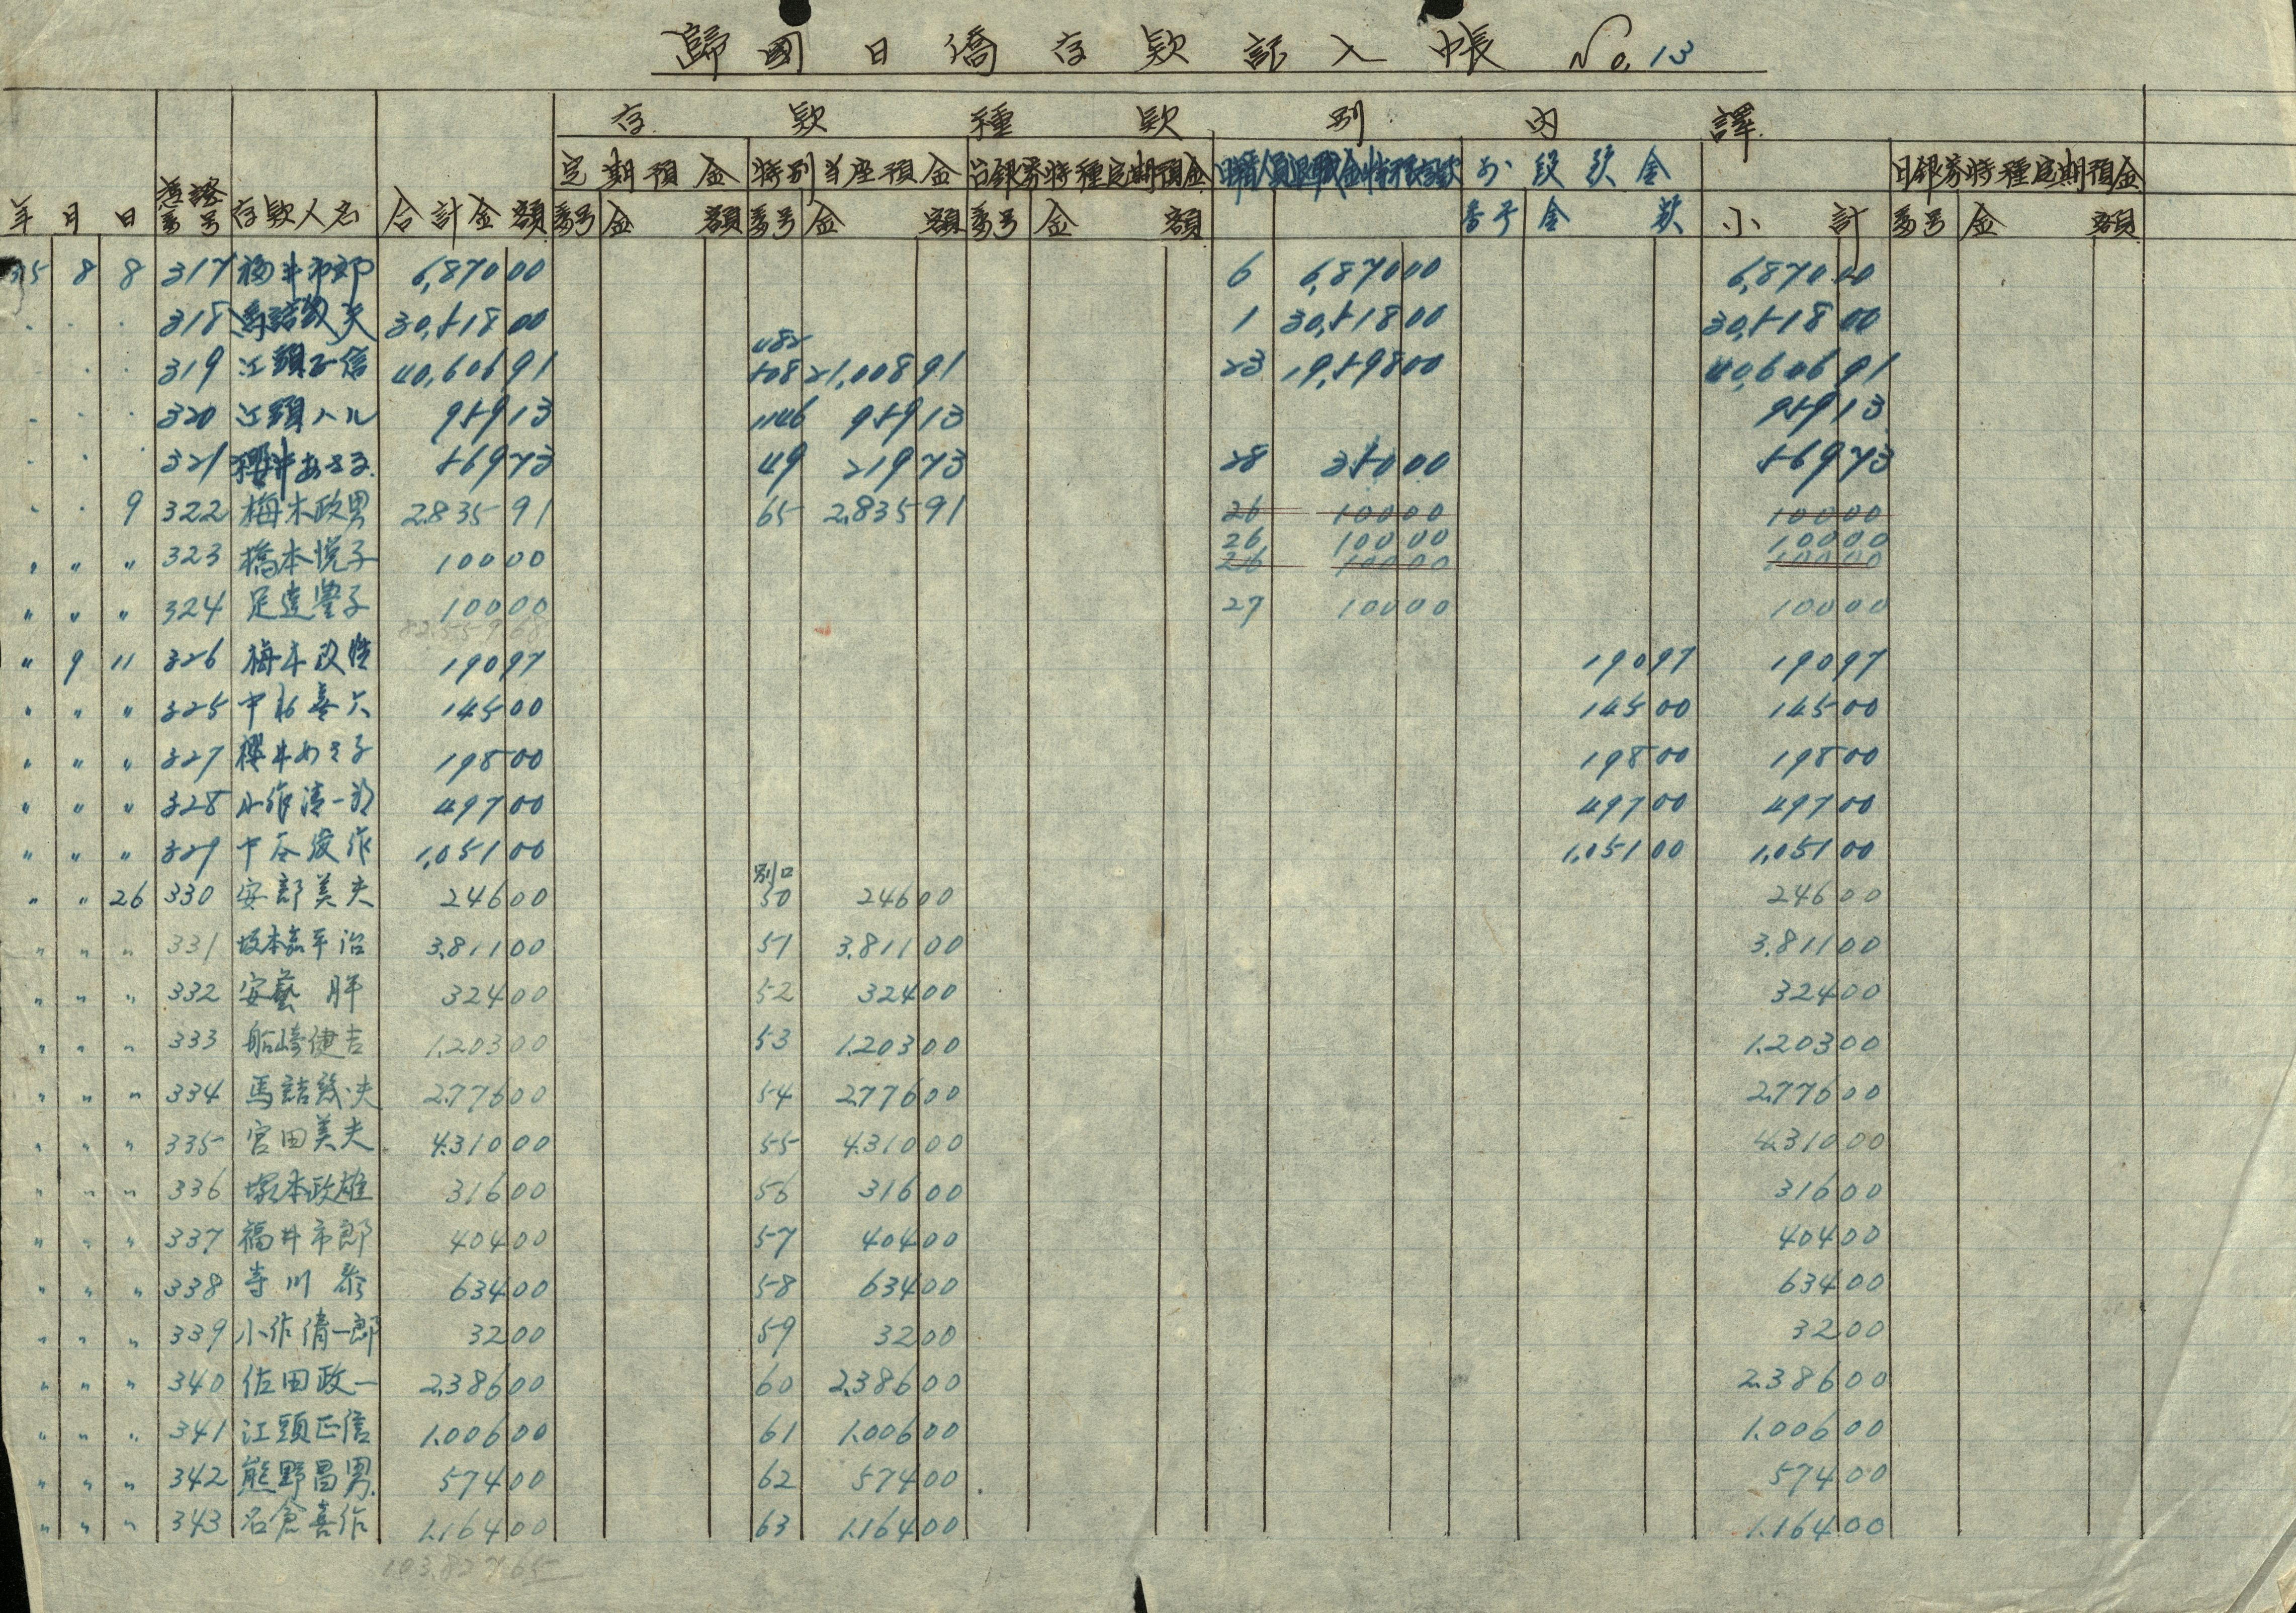 歸國日僑存款記入帳 No. 13
存款種款別內譯
定期預金 特別当座預金 台銀券特種定期預金 別段預金 日銀券特種定期預金
年 月 日 憑證番号 存款人名 合計金額 番号 金額 番号 金額 番号 金額 番号 金 小計 番号 金額
35 8 8 317 福井市郎 6,870 00 6 6,870 00 6,870 00
318 馬詰幾夫 30,518 00 1 30,518 00 30,518 00
482
319 江頭正信 40,606 91 508 21,008 91 23 19,598 00 40,606 91
320 江頭ハル 959 13 1146 959 13 959 13
321 櫻井あさ子 569 73 49 219 73 28 350 00 569 73
9 322 梅木政男 2,835 91 65 2,835 91 26 100 00 100 00
26 100 00 100 00
〃 〃 〃 323 橋本悦子 100 00 26 100 00 100 00
〃 〃 〃 324 足達豊子 100 00 27 100 00 100 00
82,559 68
〃 9 11 326 梅本政 190 97 190 97 190 97
〃 〃 〃 325 中 喜六 145 00 145 00 145 00
〃 〃 〃 327 櫻井あさ子 198 00 198 00 198 00
〃 〃 〃 328 小作清一郎 497 00 497 00 497 00
〃 〃 〃 329 中谷俊作 1,051 00 1,051 00 1,051 00
別口
〃 〃 26 330 安部美夫 246 00 50 246 00 246 00
〃 〃 〃 331 坂本嘉平治 3,811 00 51 3,811 00 3,811 00
〃 〃 〃 332 安藝 胖 324 00 52 324 00 324 00
〃 〃 〃 333 船崎健吉 1,203 00 53 1,203 00 1,203 00
〃 〃 〃 334 馬詰幾夫 2,776 00 54 2,776 00 2,776 00
〃 〃 〃 335 宮田美夫 4,310 00 55 4,310 00 4,310 00
〃 〃 〃 336 塚本政雄 316 00 56 316 00 316 00
〃 〃 〃 337 福井市郎 404 00 57 404 00 404 00
〃 〃 〃 338 寺川 泰 634 00 58 634 00 634 00
〃 〃 〃 339 小作清一郎 32 00 59 32 00 32 00
〃 〃 〃 340 佐田政一 2,386 00 60 2,386 00 2,386 00
〃 〃 〃 341 江頭正信 1,006 00 61 1,006 00 1,006 00
〃 〃 〃 342 熊野昌男 574 00 62 574 00 574 00
〃 〃 〃 343 名倉喜作 1,164 00 63 1,164 00 1,164 00
103,827 65